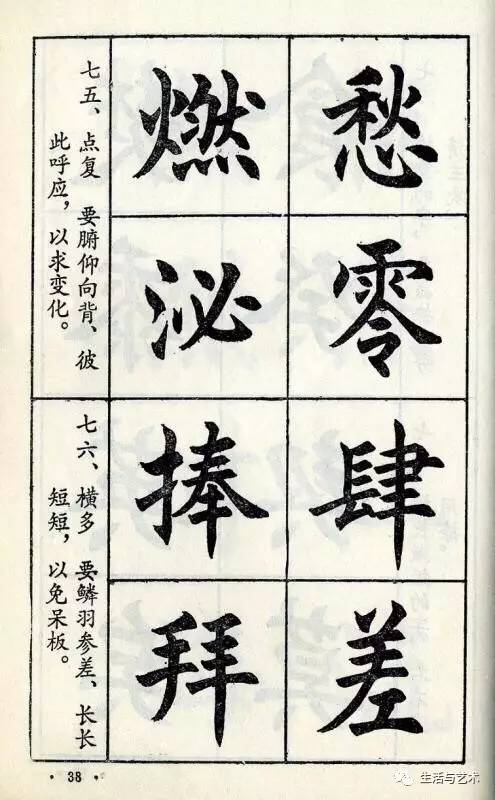 愁
零
燃
泌
七五、点复　要腑仰向背、彼
此呼应，以求变化。
肆
差
捧
拜
七六、横多　要鳞羽参差、长长
短短，以免呆板。
· 38 ·
生活与艺术